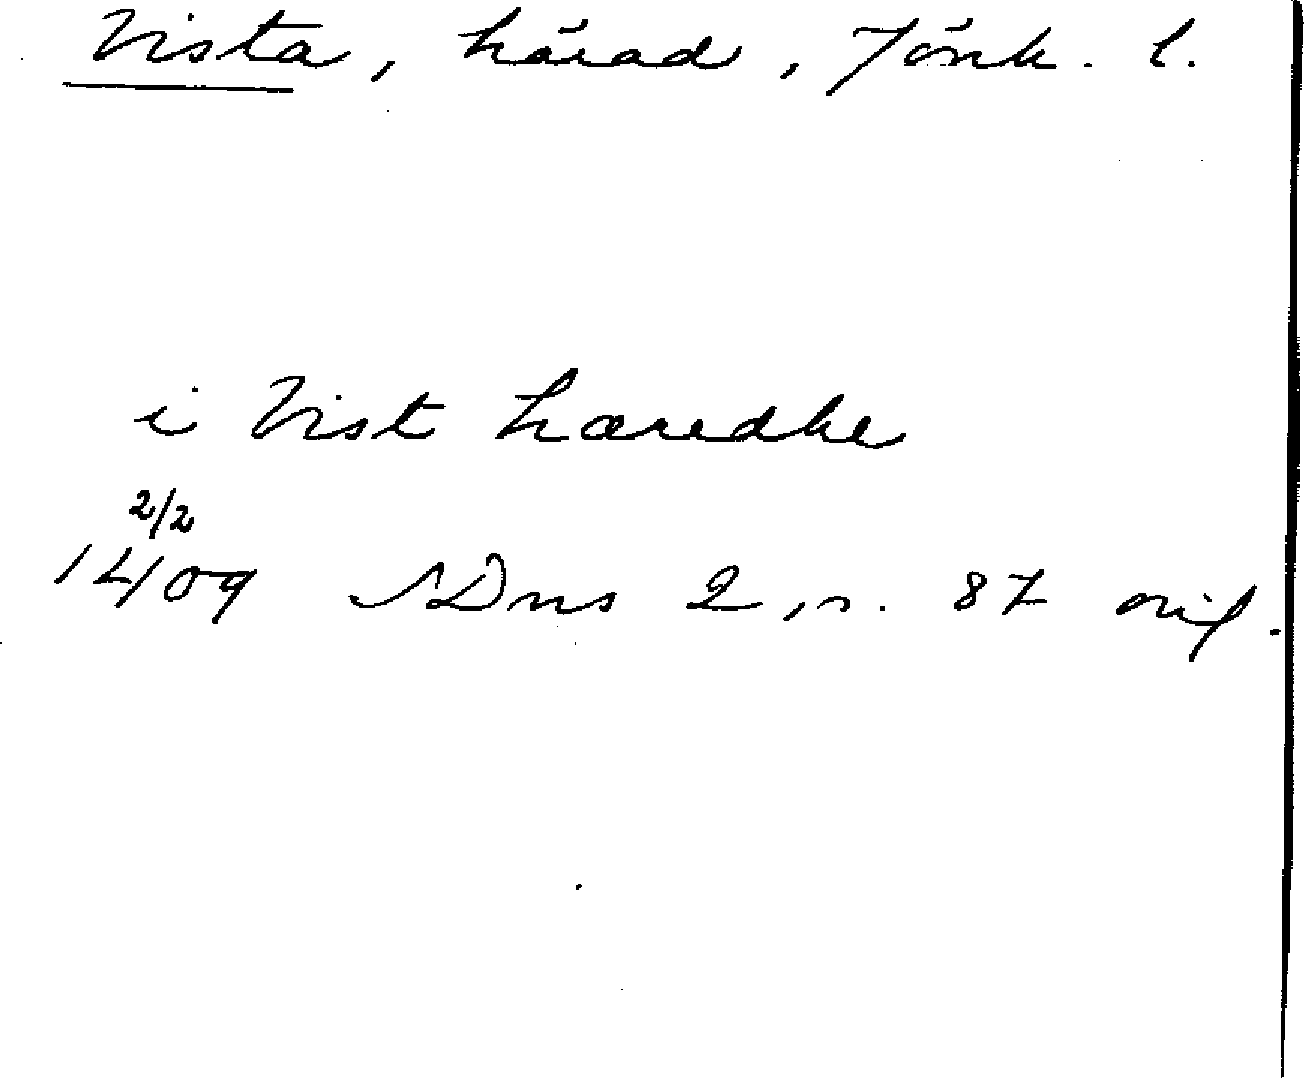 Vista, härad, Jönk. l.
i Vist hæredhe
2/2
1409 SDns 2, n. 87 orig.